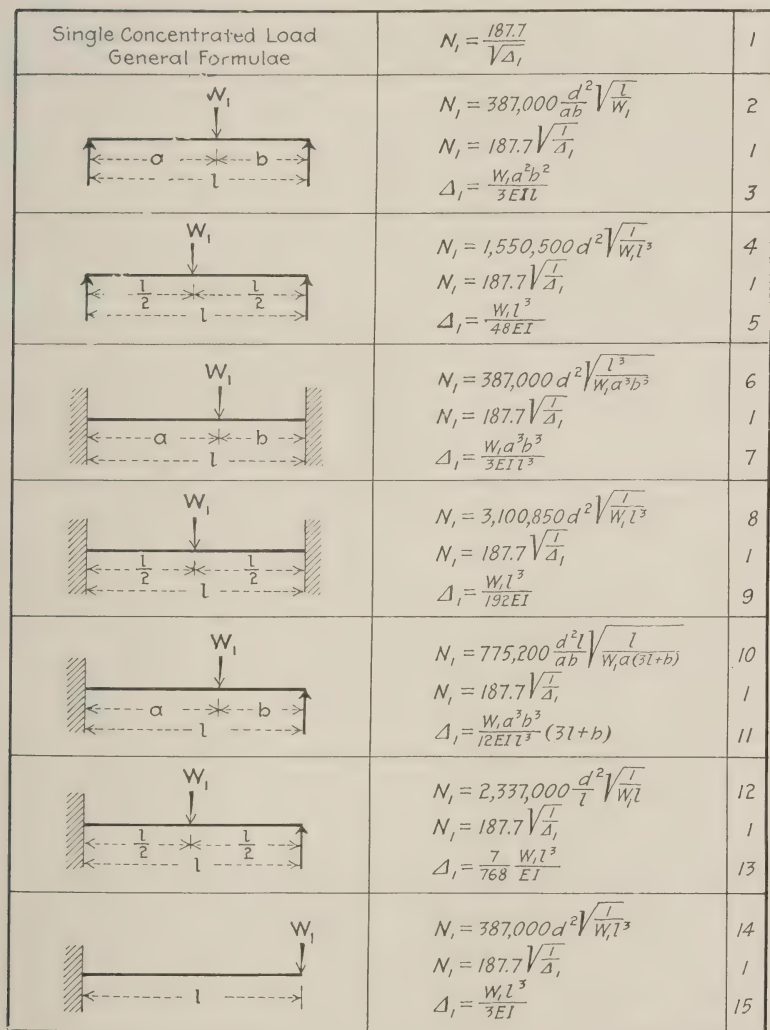 Single Concentrated Load
General Formulae
N₁ = 187.7/√Δ₁
1
W₁
a b
l
N₁ = 387,000 d²/ab √(l/W₁)
2
N₁ = 187.7 √(1/Δ₁)
1
Δ₁ = W₁a²b²/3EIl
3
W₁
l/2 l/2
l
N₁ = 1,550,500 d² √(1/W₁l³)
4
N₁ = 187.7 √(1/Δ₁)
1
Δ₁ = W₁l³/48EI
5
W₁
a b
l
N₁ = 387,000 d² √(l³/W₁a³b³)
6
N₁ = 187.7 √(1/Δ₁)
1
Δ₁ = W₁a³b³/3EIl³
7
W₁
l/2 l/2
l
N₁ = 3,100,850 d² √(1/W₁l³)
8
N₁ = 187.7 √(1/Δ₁)
1
Δ₁ = W₁l³/192EI
9
W₁
a b
l
N₁ = 775,200 d²l/ab √(l/W₁a(3l+b))
10
N₁ = 187.7 √(1/Δ₁)
1
Δ₁ = W₁a³b³/12EIl³ (3l+b)
11
W₁
l/2 l/2
l
N₁ = 2,337,000 d²/l √(1/W₁l)
12
N₁ = 187.7 √(1/Δ₁)
1
Δ₁ = 7/768 W₁l³/EI
13
W₁
l
N₁ = 387,000 d² √(1/W₁l³)
14
N₁ = 187.7 √(1/Δ₁)
1
Δ₁ = W₁l³/3EI
15